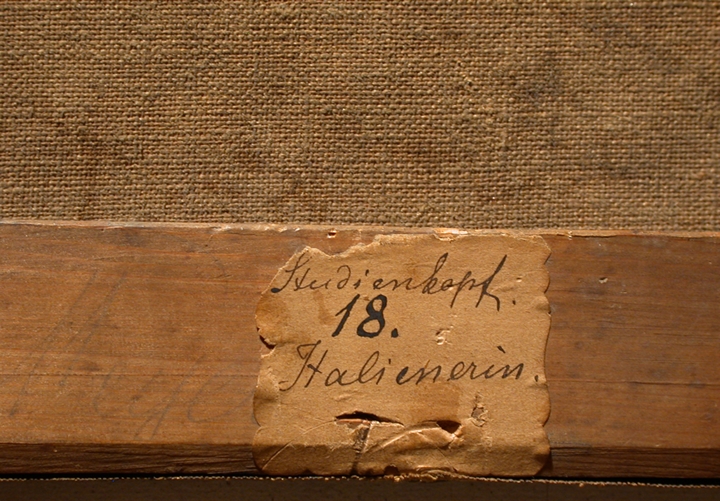 Studienkopf.
18.
Italienerin.